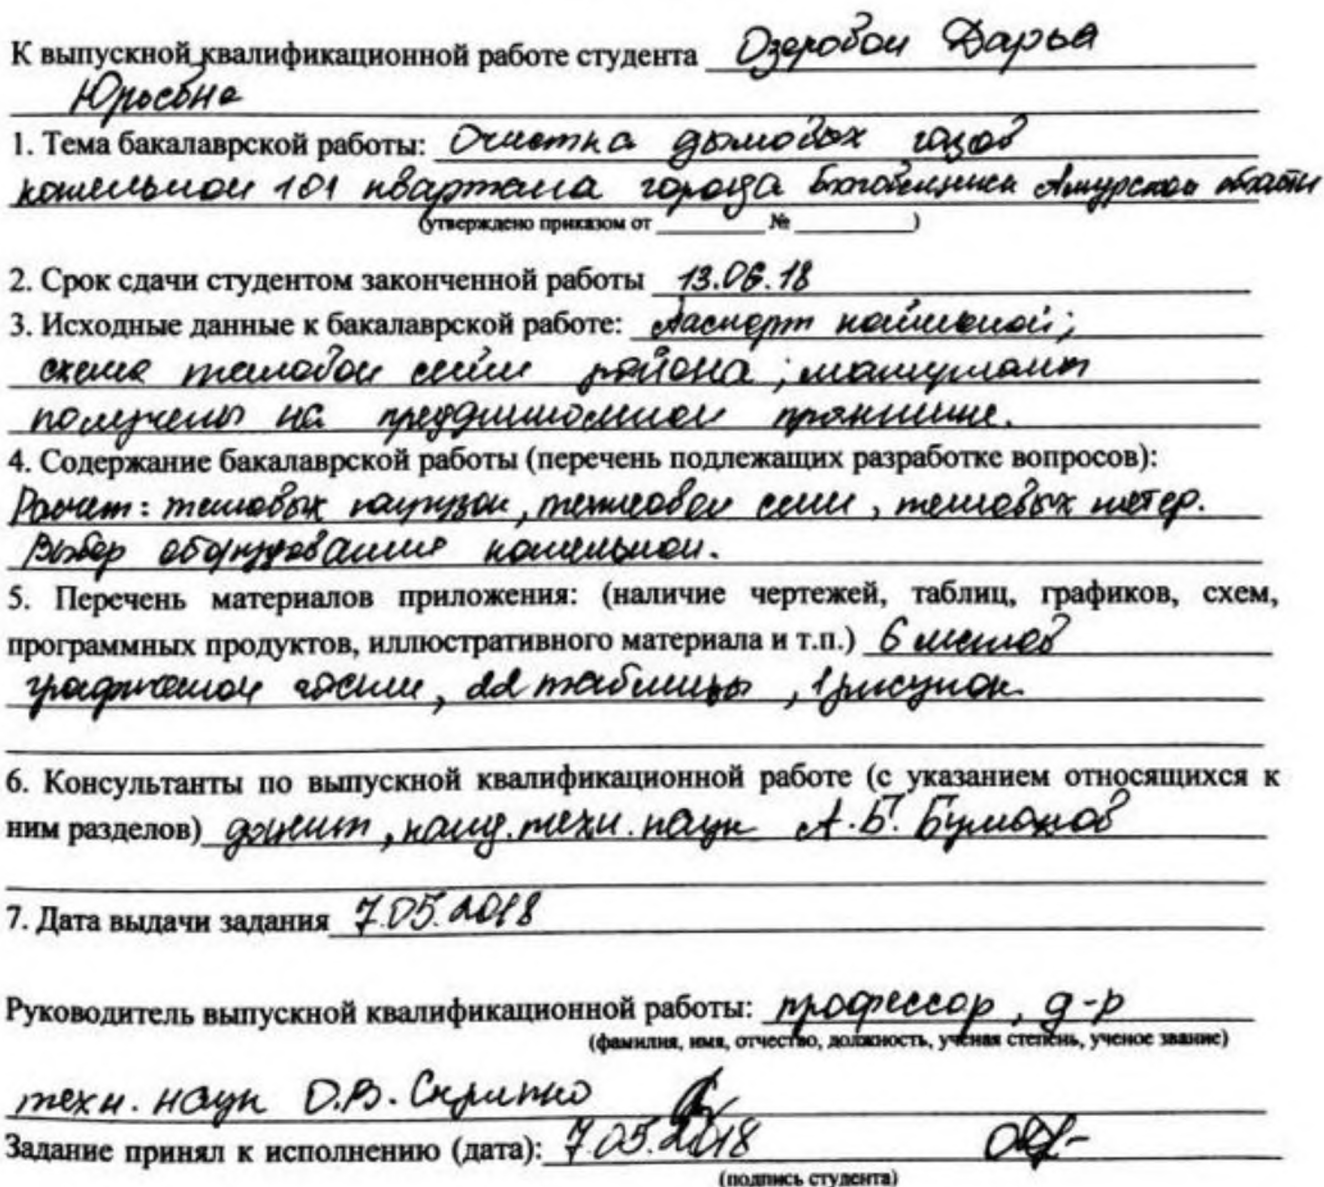 К выпускной квалификационной работе студента Озеровой Дарья
Юрьевна
1. Тема бакалаврской работы: Очистка дымовых газов
котельной 101 квартала города Благовещенска Амурской области
(утверждено приказом от ________ № ________)
2. Срок сдачи студентом законченной работы 13.06.18
3. Исходные данные к бакалаврской работе: Паспорт котельной;
схема тепловой сети района; материалы
получены на преддипломной практике.
4. Содержание бакалаврской работы (перечень подлежащих разработке вопросов):
Расчет: тепловых нагрузок, тепловой сети, тепловых потерь.
Выбор оборудования котельной.
5. Перечень материалов приложения: (наличие чертежей, таблиц, графиков, схем,
программных продуктов, иллюстративного материала и т.п.) 6 листов
графической части, 22 таблицы, 1 рисунок.
6. Консультанты по выпускной квалификационной работе (с указанием относящихся к
ним разделов) доцент, канд. техн. наук А.Б. Булгаков
7. Дата выдачи задания 7.05.2018
Руководитель выпускной квалификационной работы: профессор, д-р
(фамилия, имя, отчество, должность, ученая степень, ученое звание)
техн. наук О.В. Скрипко
Задание принял к исполнению (дата): 7.05.2018
(подпись студента)